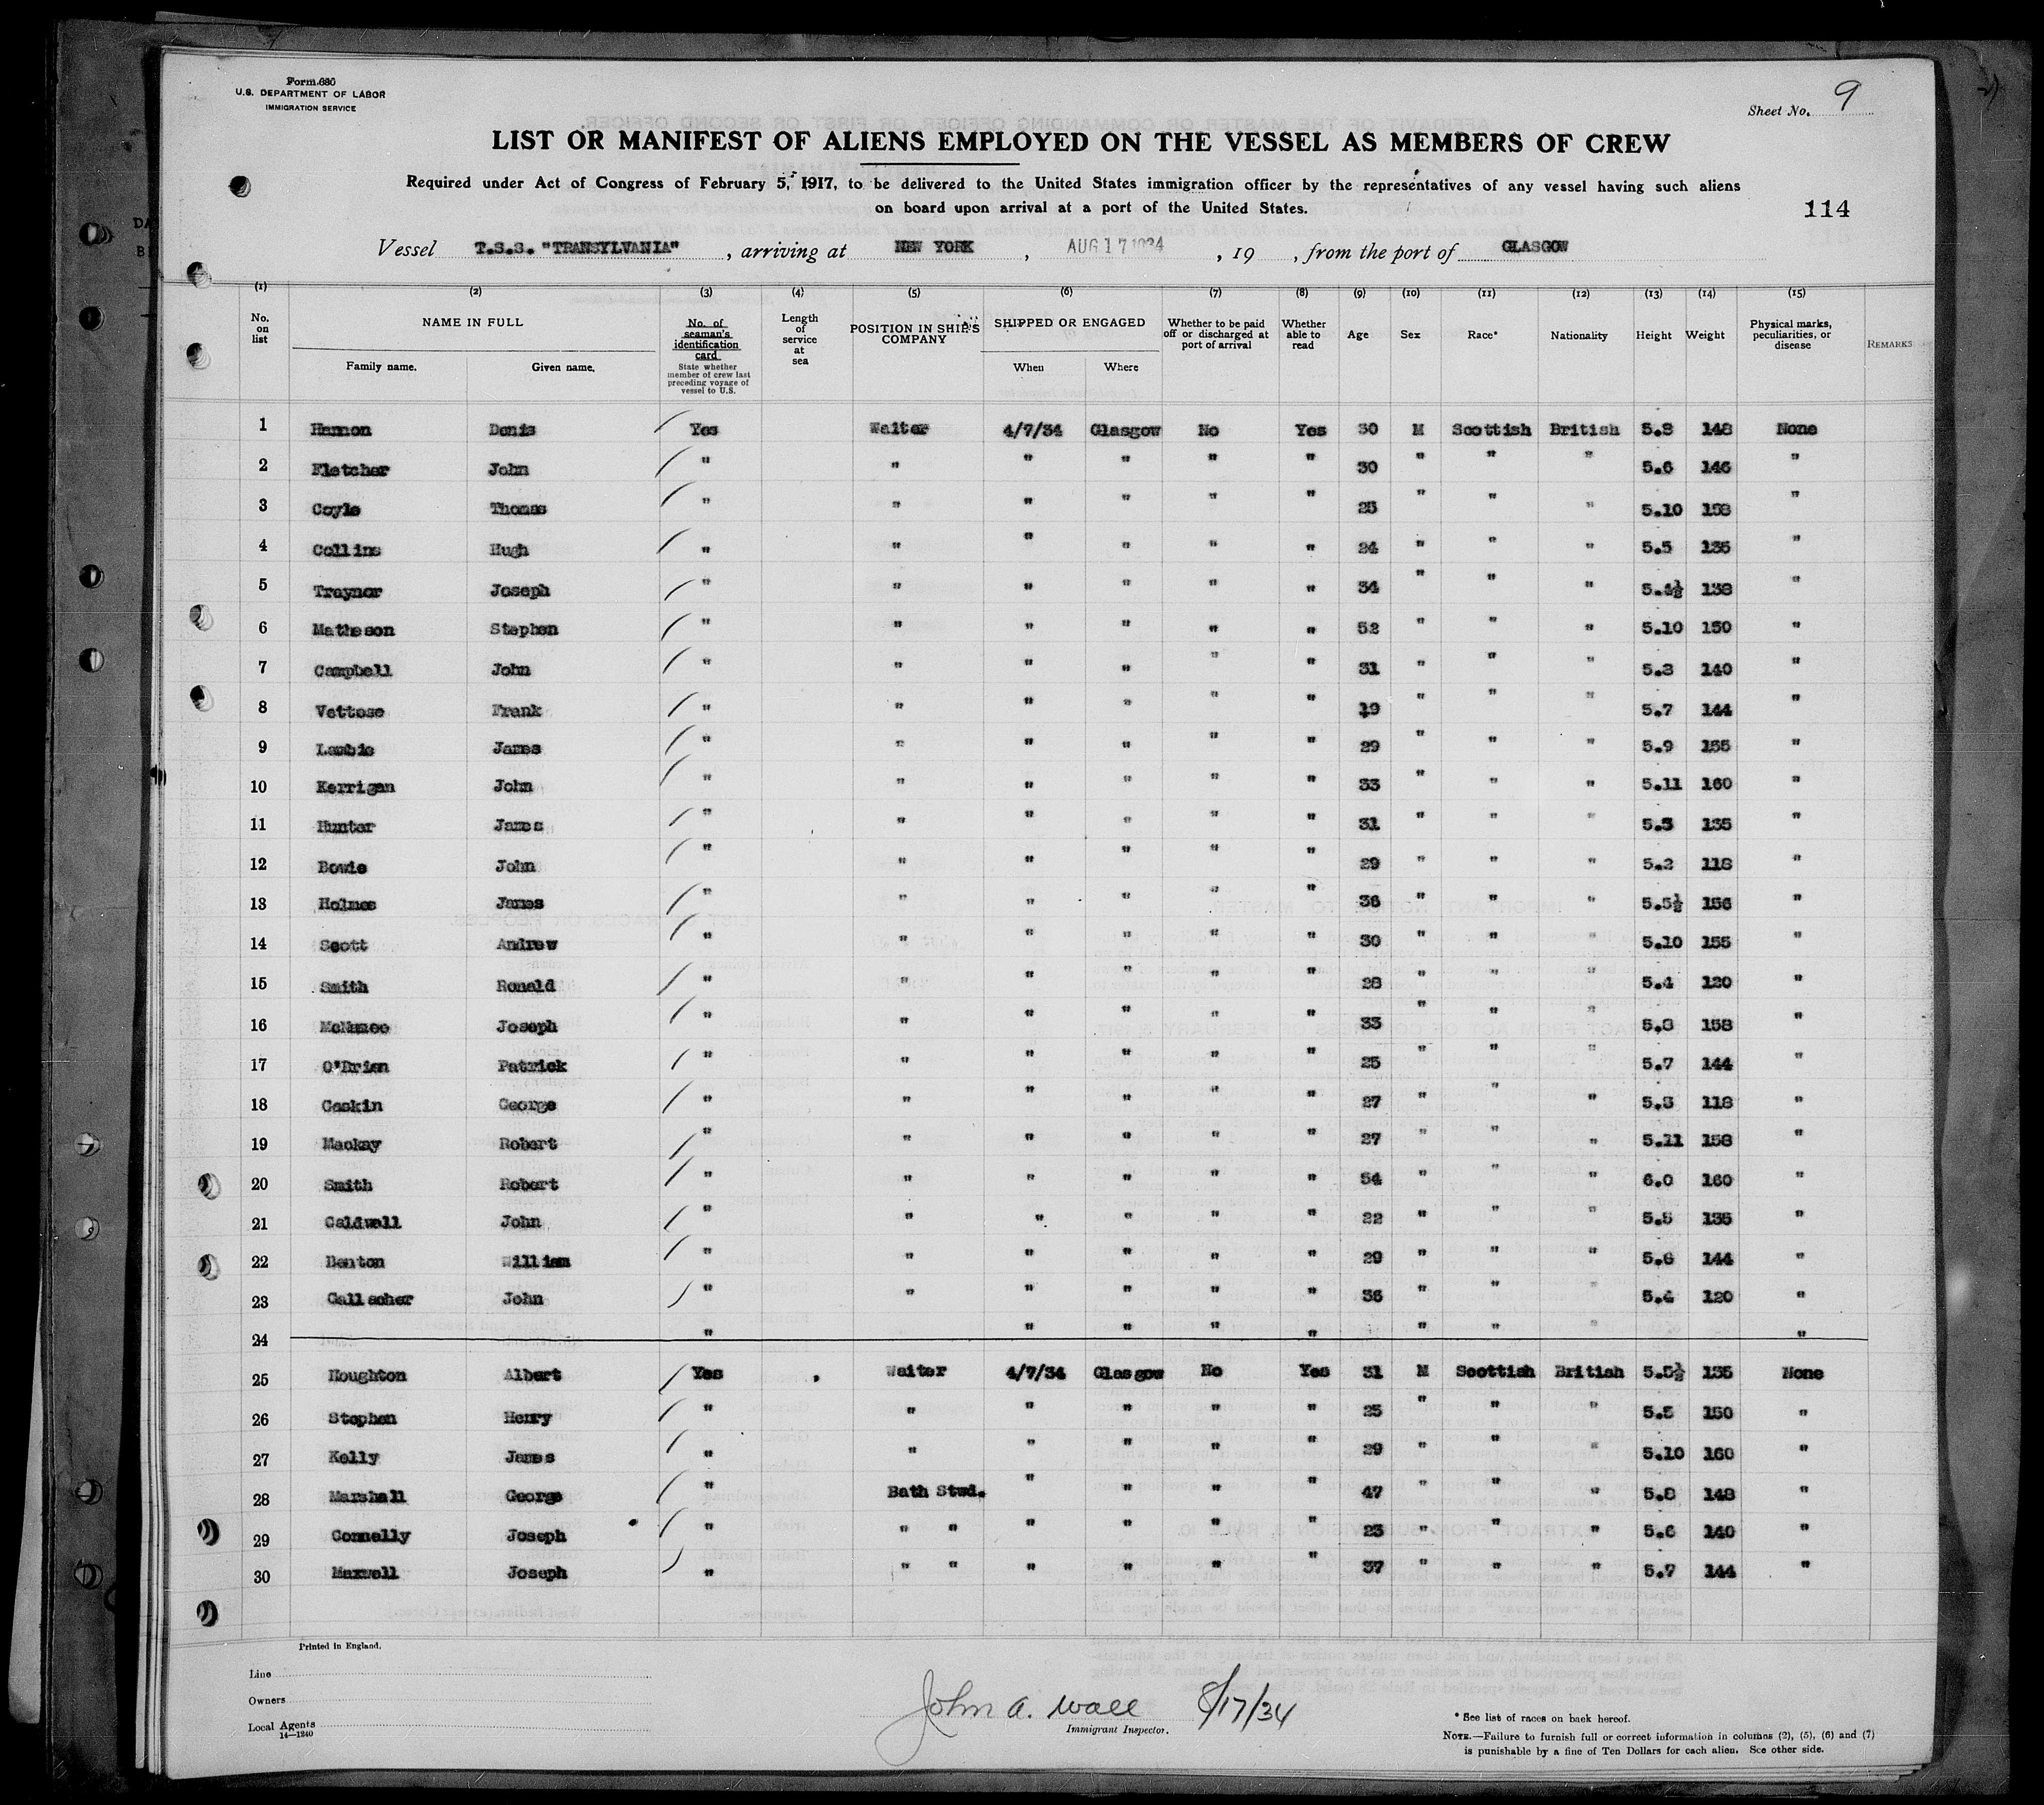 Form 680
U.S. DEPARTMENT OF LABOR
IMMIGRATION SERVICE
Sheet No. 9
LIST OR MANIFEST OF ALIENS EMPLOYED ON THE VESSEL AS MEMBERS OF CREW
Required under Act of Congress of February 5, 1917, to be delivered to the United States immigration officer by the representatives of any vessel having such aliens
on board upon arrival at a port of the United States.
114
Vessel T.S.S. "TRANSYLVANIA", arriving at NEW YORK, AUG 17 1934, 19 , from the port of GLASGOW
(1) (2) (3) (4) (5) (6) (7) (8) (9) (10) (11) (12) (13) (14) (15)
No. on list NAME IN FULL Family name. Given name. No. of seaman's identification card State whether member of crew last preceding voyage of vessel to U.S. Length of service at sea POSITION IN SHIP'S COMPANY SHIPPED OR ENGAGED When Where Whether to be paid off or discharged at port of arrival Whether able to read Age Sex Race* Nationality Height Weight Physical marks, peculiarities, or disease REMARKS
1 Hannon Denis Yes Waiter 4/7/34 Glasgow No Yes 30 M Scottish British 5.8 148 None
2 Fletcher John " " " " " " 30 " " " 5.6 146 "
3 Coyle Thomas " " " " " " 25 " " " 5.10 158 "
4 Collins Hugh " " " " " " 24 " " " 5.5 135 "
5 Traynor Joseph " " " " " " 34 " " " 5.4½ 138 "
6 Matheson Stephen " " " " " " 52 " " " 5.10 150 "
7 Campbell John " " " " " " 31 " " " 5.8 140 "
8 Vettese Frank " " " " " " 19 " " " 5.7 144 "
9 Lambie James " " " " " " 29 " " " 5.9 155 "
10 Kerrigan John " " " " " " 33 " " " 5.11 160 "
11 Hunter James " " " " " " 31 " " " 5.5 135 "
12 Bowie John " " " " " " 29 " " " 5.2 118 "
13 Holmes James " " " " " " 36 " " " 5.5½ 156 "
14 Scott Andrew " " " " " " 30 " " " 5.10 155 "
15 Smith Ronald " " " " " " 28 " " " 5.4 120 "
16 McNamee Joseph " " " " " " 33 " " " 5.8 158 "
17 O'Brien Patrick " " " " " " 25 " " " 5.7 144 "
18 Gaskin George " " " " " " 27 " " " 5.3 118 "
19 Mackay Robert " " " " " " 27 " " " 5.11 158 "
20 Smith Robert " " " " " " 54 " " " 6.0 160 "
21 Caldwell John " " " " " " 22 " " " 5.5 135 "
22 Benton William " " " " " " 29 " " " 5.6 144 "
23 Gallacher John " " " " " " 36 " " " 5.4 120 "
24 " " " " " " " " "
25 Houghton Albert Yes Waiter 4/7/34 Glasgow No Yes 31 M Scottish British 5.5½ 135 None
26 Stephen Henry " " " " " " 25 " " " 5.5 150 "
27 Kelly James " " " " " " 29 " " " 5.10 160 "
28 Marshall George " Bath Stwd. " " " " 47 " " " 5.8 148 "
29 Connelly Joseph " " " " " " " 23 " " " 5.6 140 "
30 Maxwell Joseph " " " " " " " 37 " " " 5.7 144 "
Printed in England.
Line
Owners
Local Agents
14—1240
John A. Wall 8/17/34
Immigrant Inspector.
* See list of races on back hereof.
NOTE.—Failure to furnish full or correct information in columns (2), (5), (6) and (7)
is punishable by a fine of Ten Dollars for each alien. See other side.